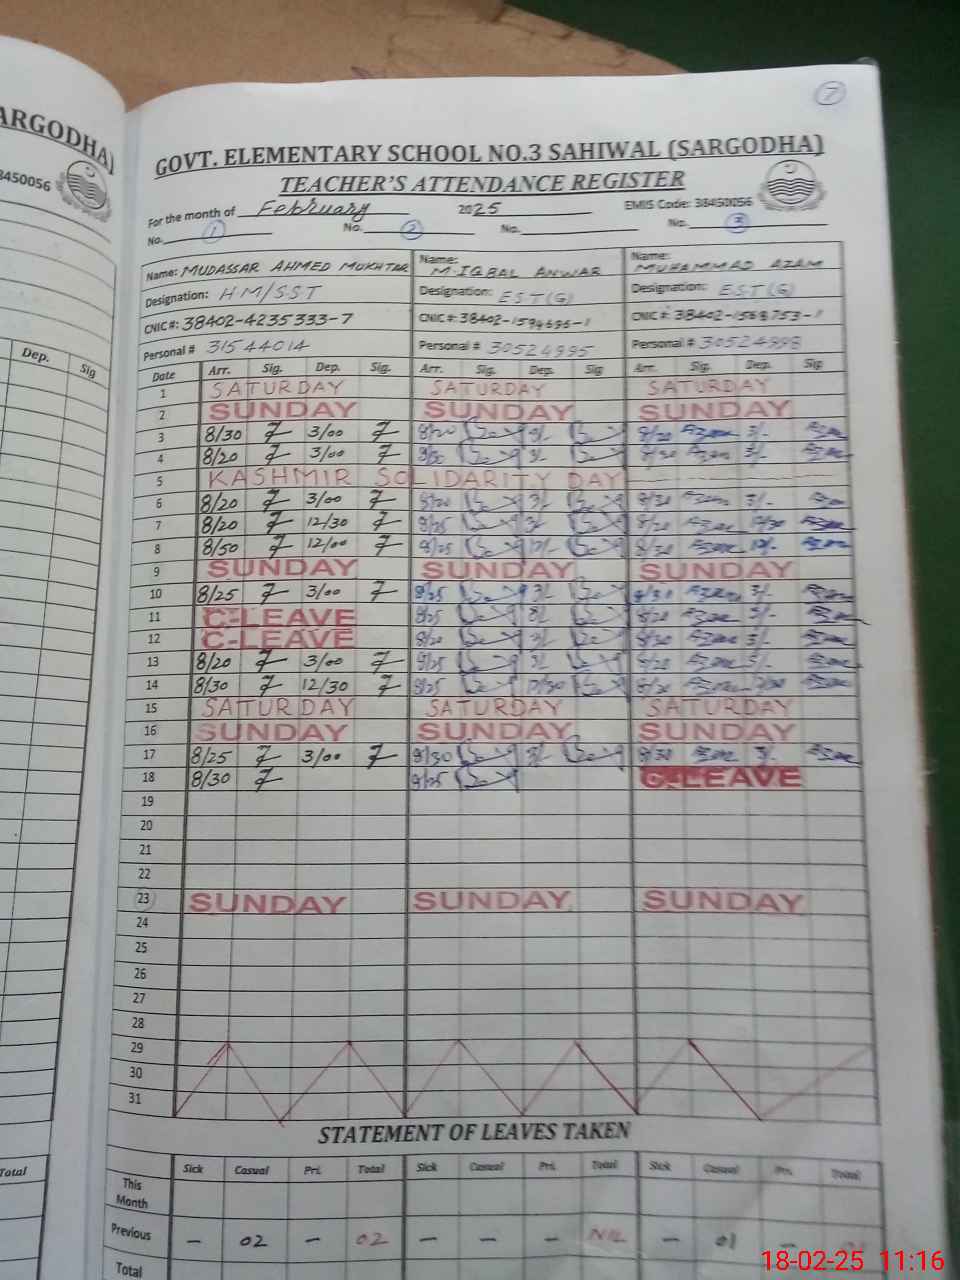 ARGODHA)
8450056
Dep. Sig
Total
7
GOVT. ELEMENTARY SCHOOL NO.3 SAHIWAL (SARGODHA)
TEACHER'S ATTENDANCE REGISTER
For the month of February 2025 EMIS Code: 38450056
No. 1 No. 2 No. No. 3
Name: MUDASSAR AHMED MUKHTAR Name: M.IQBAL ANWAR Name: MUHAMMAD AZAM
Designation: HM/SST Designation: EST(G) Designation: EST(G)
CNIC#: 38402-4235333-7 CNIC#: 38402-1594695-1 CNIC#: 38402-1568753-1
Personal # 31544014 Personal # 30524995 Personal # 30524998
Date Arr. Sig. Dep. Sig. Arr. Sig. Dep. Sig Arr. Sig. Dep. Sig
1 SATURDAY SATURDAY SATURDAY
2 SUNDAY SUNDAY SUNDAY
3 8/30 3/00 8/20 8/20 3/-
4 8/20 3/00 3/- 8/30 3/-
5 KASHMIR SOLIDARITY DAY
6 8/20 3/00 8/20 3/- 8/30 3/-
7 8/20 12/30 8/25 8/20 12/30
8 8/50 12/00 8/25 12/- 8/30 12/-
9 SUNDAY SUNDAY SUNDAY
10 8/25 3/00 8/25 3/- 8/30 3/-
11 C-LEAVE 8/25 8/20 3/-
12 C-LEAVE 8/20 3/- 8/30 3/-
13 8/20 3/00 8/25 3/- 8/20
14 8/30 12/30 8/25 12/30 8/20 12/30
15 SATURDAY SATURDAY SATURDAY
16 SUNDAY SUNDAY SUNDAY
17 8/25 3/00 8/30 3/- 8/30 3/-
18 8/30 8/25 C-LEAVE
19
20
21
22
23 SUNDAY SUNDAY SUNDAY
24
25
26
27
28
29
30
31
STATEMENT OF LEAVES TAKEN
Sick Casual Pri. Total Sick Casual Pri. Total Sick Casual Pri. Total
This Month
Previous - 02 - 02 - - - NIL - 01 -
Total
18-02-25 11:16